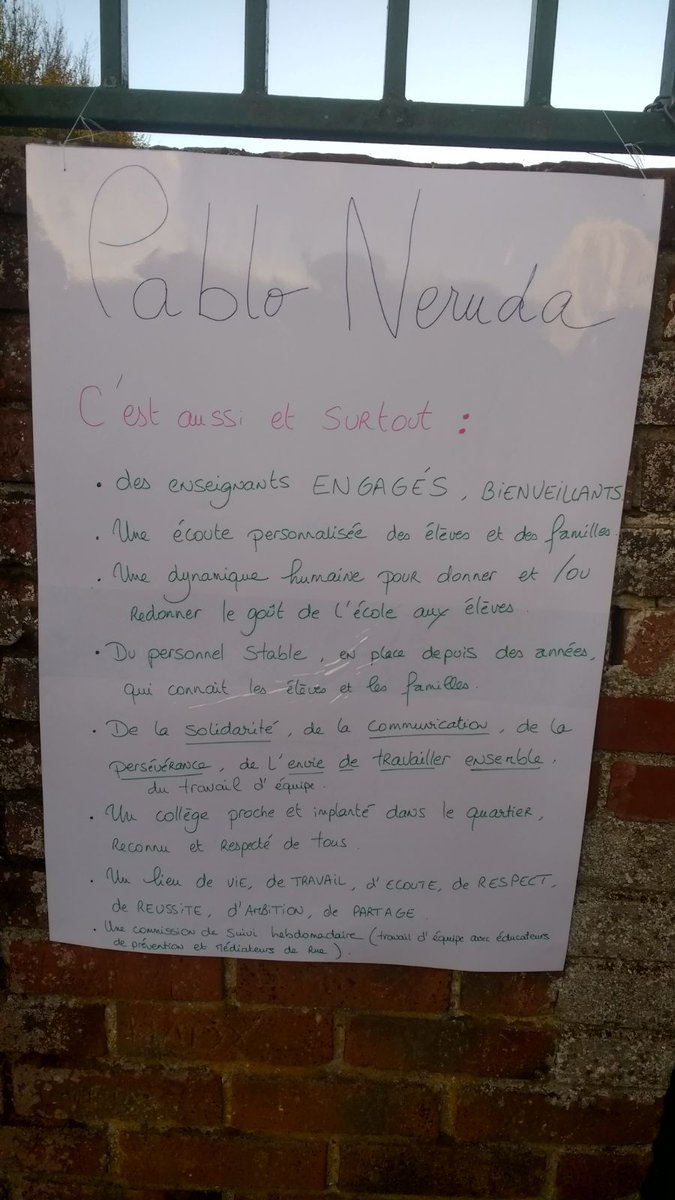 Pablo Neruda
C'est aussi et SURTOUT :
• des enseignants ENGAGÉS, BIENVEILLANTS
• Une écoute personnalisée des élèves et des familles.
• Une dynamique humaine pour donner et /ou
Redonner le goût de l'école aux élèves.
• Du personnel stable, en place depuis des années,
qui connait les élèves et les familles.
• De la solidarité, de la communication, de la
persévérance, de l'envie de travailler ensemble,
du travail d'équipe.
• Un collège proche et implanté dans le quartier,
Reconnu et Respecté de tous.
• Un lieu de VIE, de TRAVAIL, d'ECOUTE, de RESPECT,
de REUSSITE, d'AMBITION, de PARTAGE.
• Une commission de suivi hebdomadaire (travail d'équipe avec éducateurs
de prévention et Médiateurs de Rue).